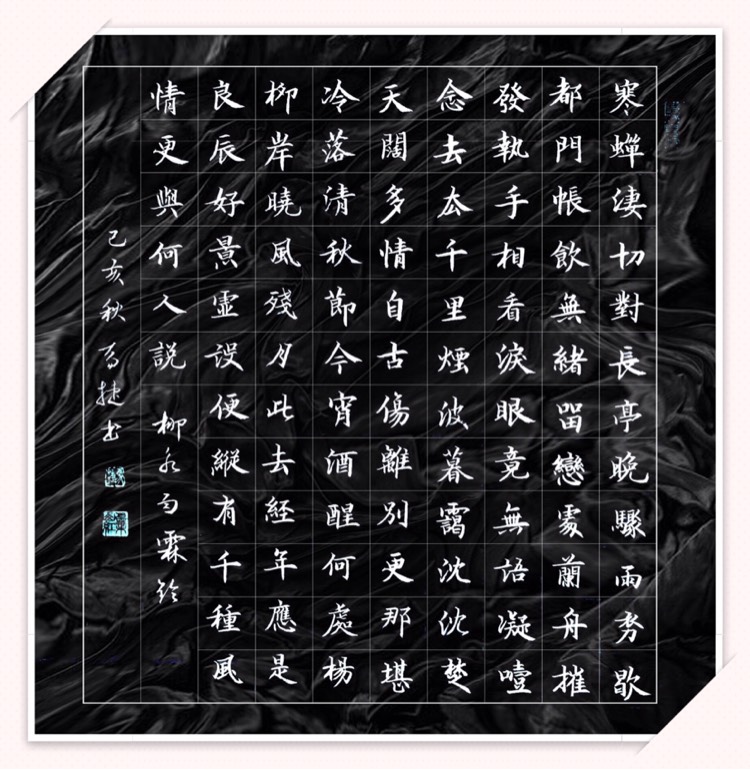 寒蟬淒切對長亭晚驟雨初歇
都門帳飲無緒留戀處蘭舟摧
發執手相看淚眼竟無語凝噎
念去去千里煙波暮靄沈沈楚
天闊多情自古傷離別更那堪
冷落清秋節今宵酒醒何處楊
柳岸曉風殘月此去經年應是
良辰好景虛設便縱有千種風
情更與何人説 柳永雨霖鈴
己亥秋马捷书